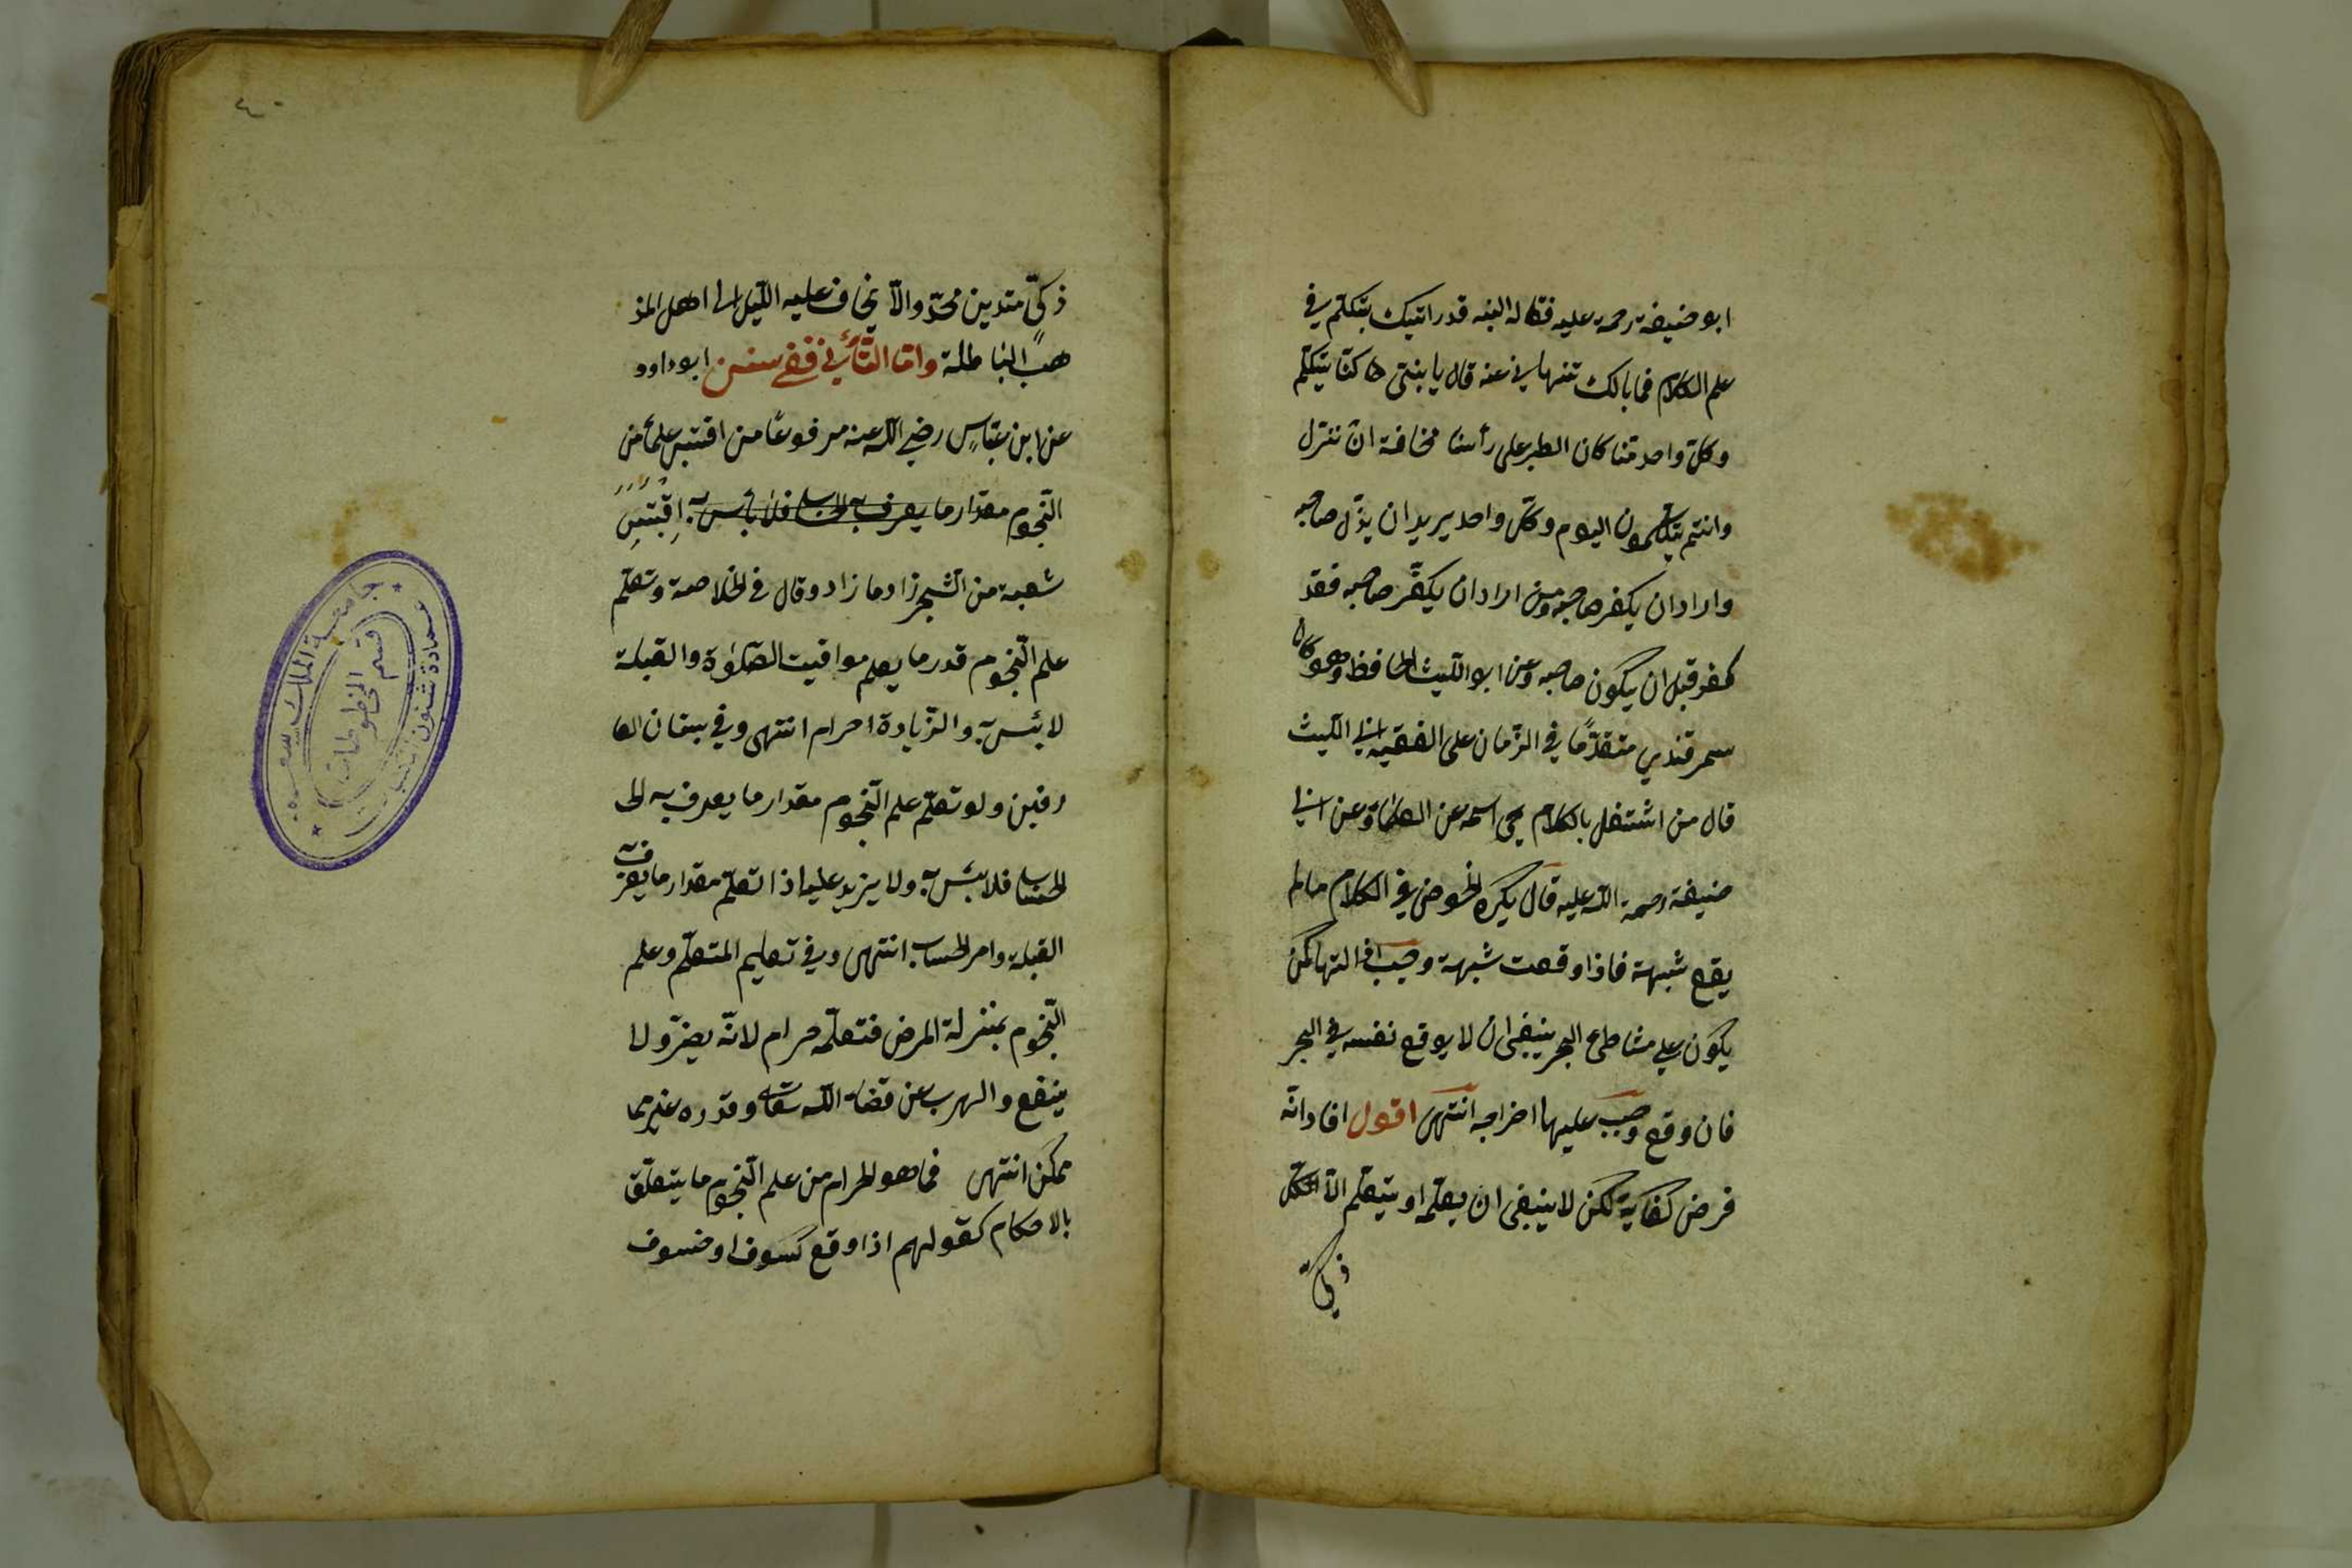 ابو حنيفة رحمة عليه فقال له ابنه قد رايتك يتكلم في
علم الكلام فما بالك تنهاني عنه قال يا بنتي كنا يتكلم
وكل واحد منا كان الطير على رأسنا مخافة ان ننزل
وانتم يتكلمون اليوم وكل واحد يريد ان يذل صاحبه
واراد ان يكفر صاحبه ومن اراد ان يكفّر صاحبه فقد
كفر قبل ان يكون صاحبه وعن ابو الليث الحافظ وهو كان
سمرقندي متقدمًا في الزمان على الفقيه ابي الليث
قال من اشتغل بالكلام محى اسمه عن العلماء وعن ابي
حنيفة رحمة الله عليه قال يكره الخوض في الكلام مالم
يقع شبهة فاذا وقعت شبهة وجب ازالتها كمن
يكون على شاطئ البحر ينبغي ان لا يوقع نفسه في البحر
فان وقع وجب عليها اخراجه انتهى اقول افاد انه
فرض كفاية لكن لا ينبغي ان يعلّمه او يتعلّم الا لكل
ذكي
٤٠
ذكيّ متدين مجدّ والا يخاف عليه الليل الى اهل المذ
هب الباطلة واما الثاني ففي سنن ابو داود
عن ابن عبّاس رضي الله عنه مرفوعًا من اقتبس علماً من
النجوم مقدار ما يعرف به الحساب فلا بأس به اقتبس
شعبة من السّحر زاد ما زاد وقال في الخلاصة وتعلم
علم النجوم قدر ما يعلم مواقيت الصلوٰة والقبلة
لا بئس به والزيادة احرام انتهى وفي بستان العا
رفين ولو تعلم علم النجوم مقدار ما يعرف به الحـ
الحساب فلا بئس به ولا يزيد عليه اذا تعلّم مقدار ما يعرف به
القبلة وامر الحساب انتهى وفي تعليم المتعلّم وعلم
النّجوم بمنزلة المرض فتعلّمه حرام لانّه يضرّ ولا
ينفع والهرب عن قضاء الله تعالى وقدره غير مما
ممكن انتهى فما هو الحرام من علم النجوم ما يتعلّق
بالاحكام كقولهم اذا وقع كسوف او خسوف
جامعة الملك سعود
عمادة شئون المكتبات
قسم المخطوطات